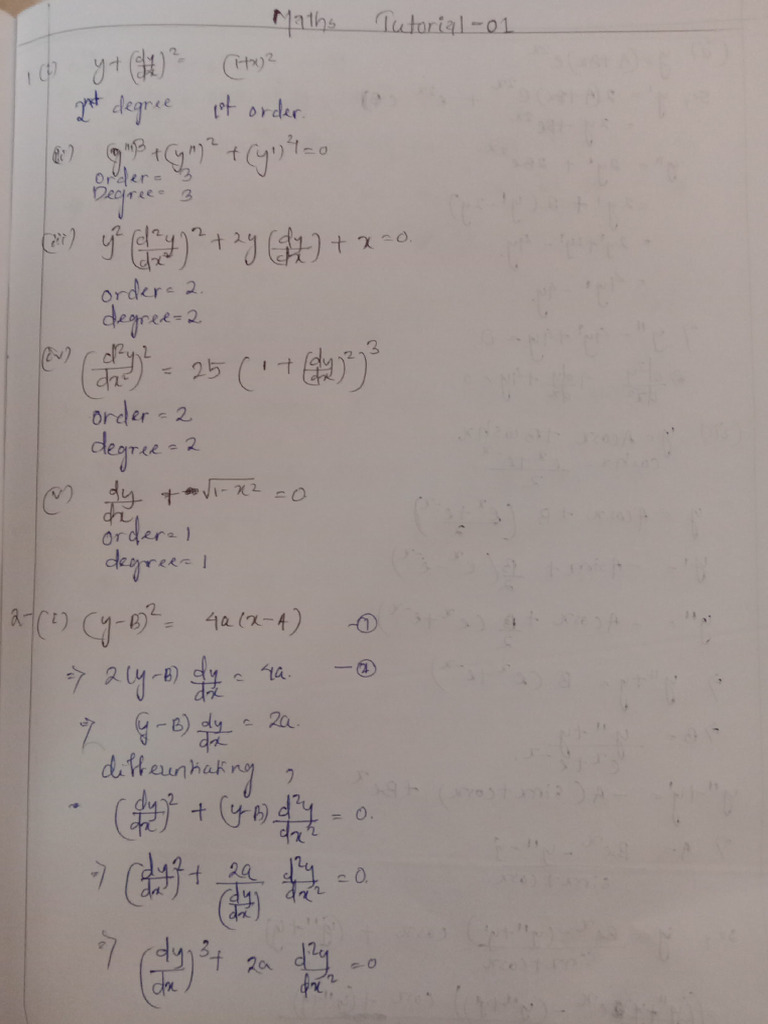 Maths Tutorial-01
1 (i) y + (dy/dx)² = (1+x)²
2nd degree 1st order.
(ii) (y''')³ + (y'')² + (y')⁴ = 0
order = 3
Degree = 3
(iii) y² (d²y/dx²)² + 2y (dy/dx) + x = 0.
order = 2.
degree = 2
(iv) (d²y/dx²)² = 25 (1 + (dy/dx)²)³
order = 2
degree = 2
(v) dy/dx + √1-x² = 0
order = 1
degree = 1
2- (i) (y-B)² = 4a(x-A) -①
⇒ 2(y-B) dy/dx = 4a. -②
⇒ (y-B) dy/dx = 2a.
differentiating,
(dy/dx)² + (y-B) d²y/dx² = 0.
⇒ (dy/dx)² + 2a/(dy/dx) d²y/dx² = 0.
⇒ (dy/dx)³ + 2a d²y/dx² = 0